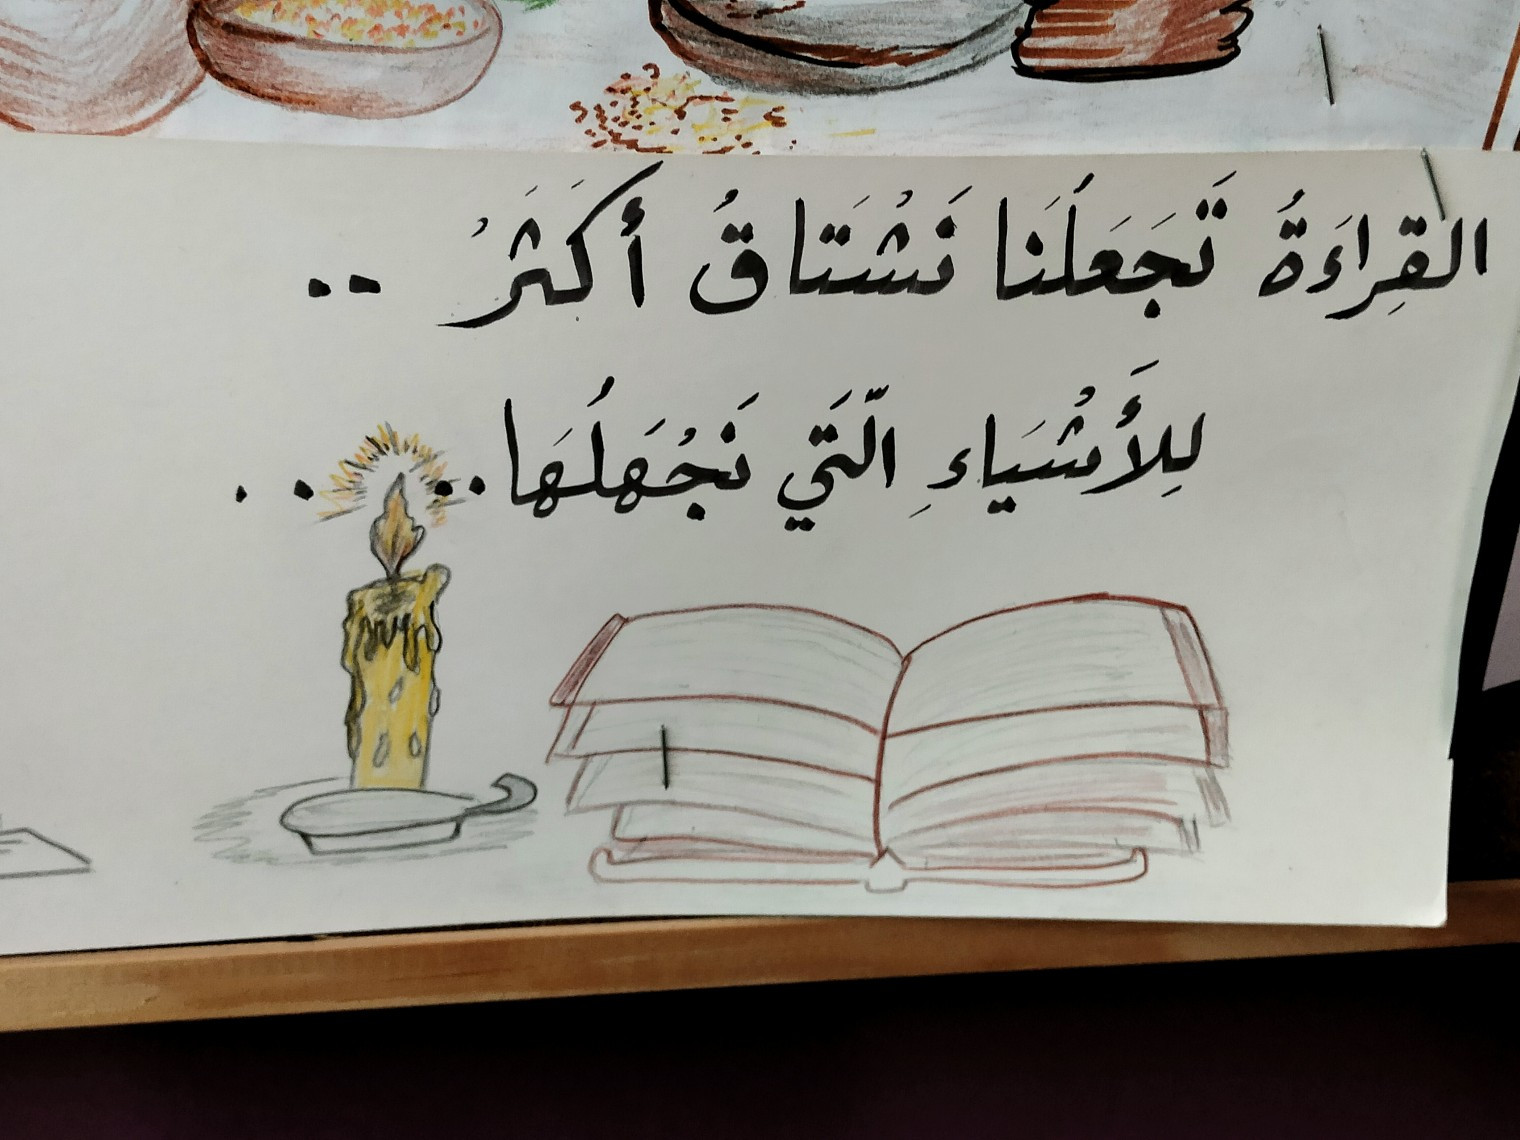 القِراءَةُ تَجَعَلُنَا نَشْتَاقُ أَكَثَرُ ..
لِلأَشْيَاءِ الَّتَي نَجْهَلُهَا.. . .